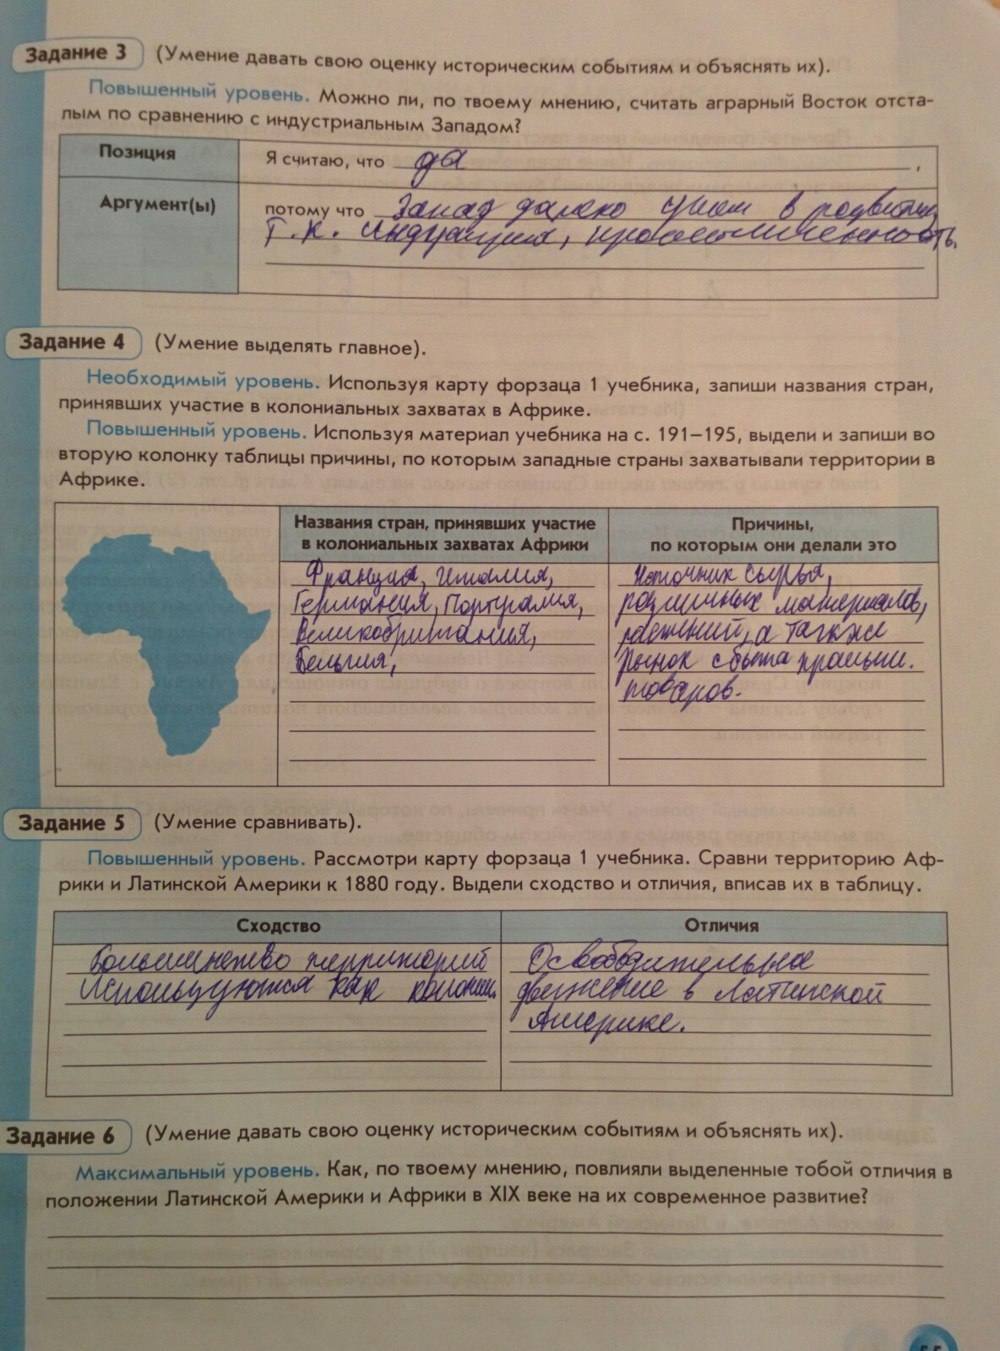 Задание 3 (Умение давать свою оценку историческим событиям и объяснять их).
Повышенный уровень. Можно ли, по твоему мнению, считать аграрный Восток отста-
лым по сравнению с индустриальным Западом?
Позиция Я считаю, что да ,
Аргумент(ы) потому что Запад далеко ушел в развитии
Т.к. промышленность.
Задание 4 (Умение выделять главное).
Необходимый уровень. Используя карту форзаца 1 учебника, запиши названия стран,
принявших участие в колониальных захватах в Африке.
Повышенный уровень. Используя материал учебника на с. 191–195, выдели и запиши во
вторую колонку таблицы причины, по которым западные страны захватывали территории в
Африке.
Названия стран, принявших участие
в колониальных захватах Африки
Причины,
по которым они делали это
Франция, Италия,
Германия, Португалия,
Великобритания,
Бельгия,
Источник сырья,
различных материалов,
растений, а также
Рынок сбыта промыш.
товаров.
Задание 5 (Умение сравнивать).
Повышенный уровень. Рассмотри карту форзаца 1 учебника. Сравни территорию Аф-
рики и Латинской Америки к 1880 году. Выдели сходство и отличия, вписав их в таблицу.
Сходство
Отличия
Большинство территорий
используются как колонии.
Освободительное
движение в Латинской
Америке.
Задание 6 (Умение давать свою оценку историческим событиям и объяснять их).
Максимальный уровень. Как, по твоему мнению, повлияли выделенные тобой отличия в
положении Латинской Америки и Африки в XIX веке на их современное развитие?